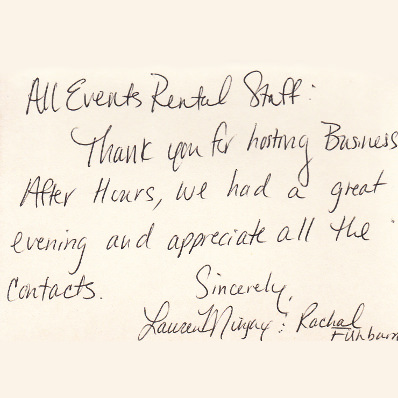 All Events Rental Staff:
Thank you for hosting Business
After Hours, we had a great
evening and appreciate all the
Contacts.
Sincerely,
Lauren : Rachal